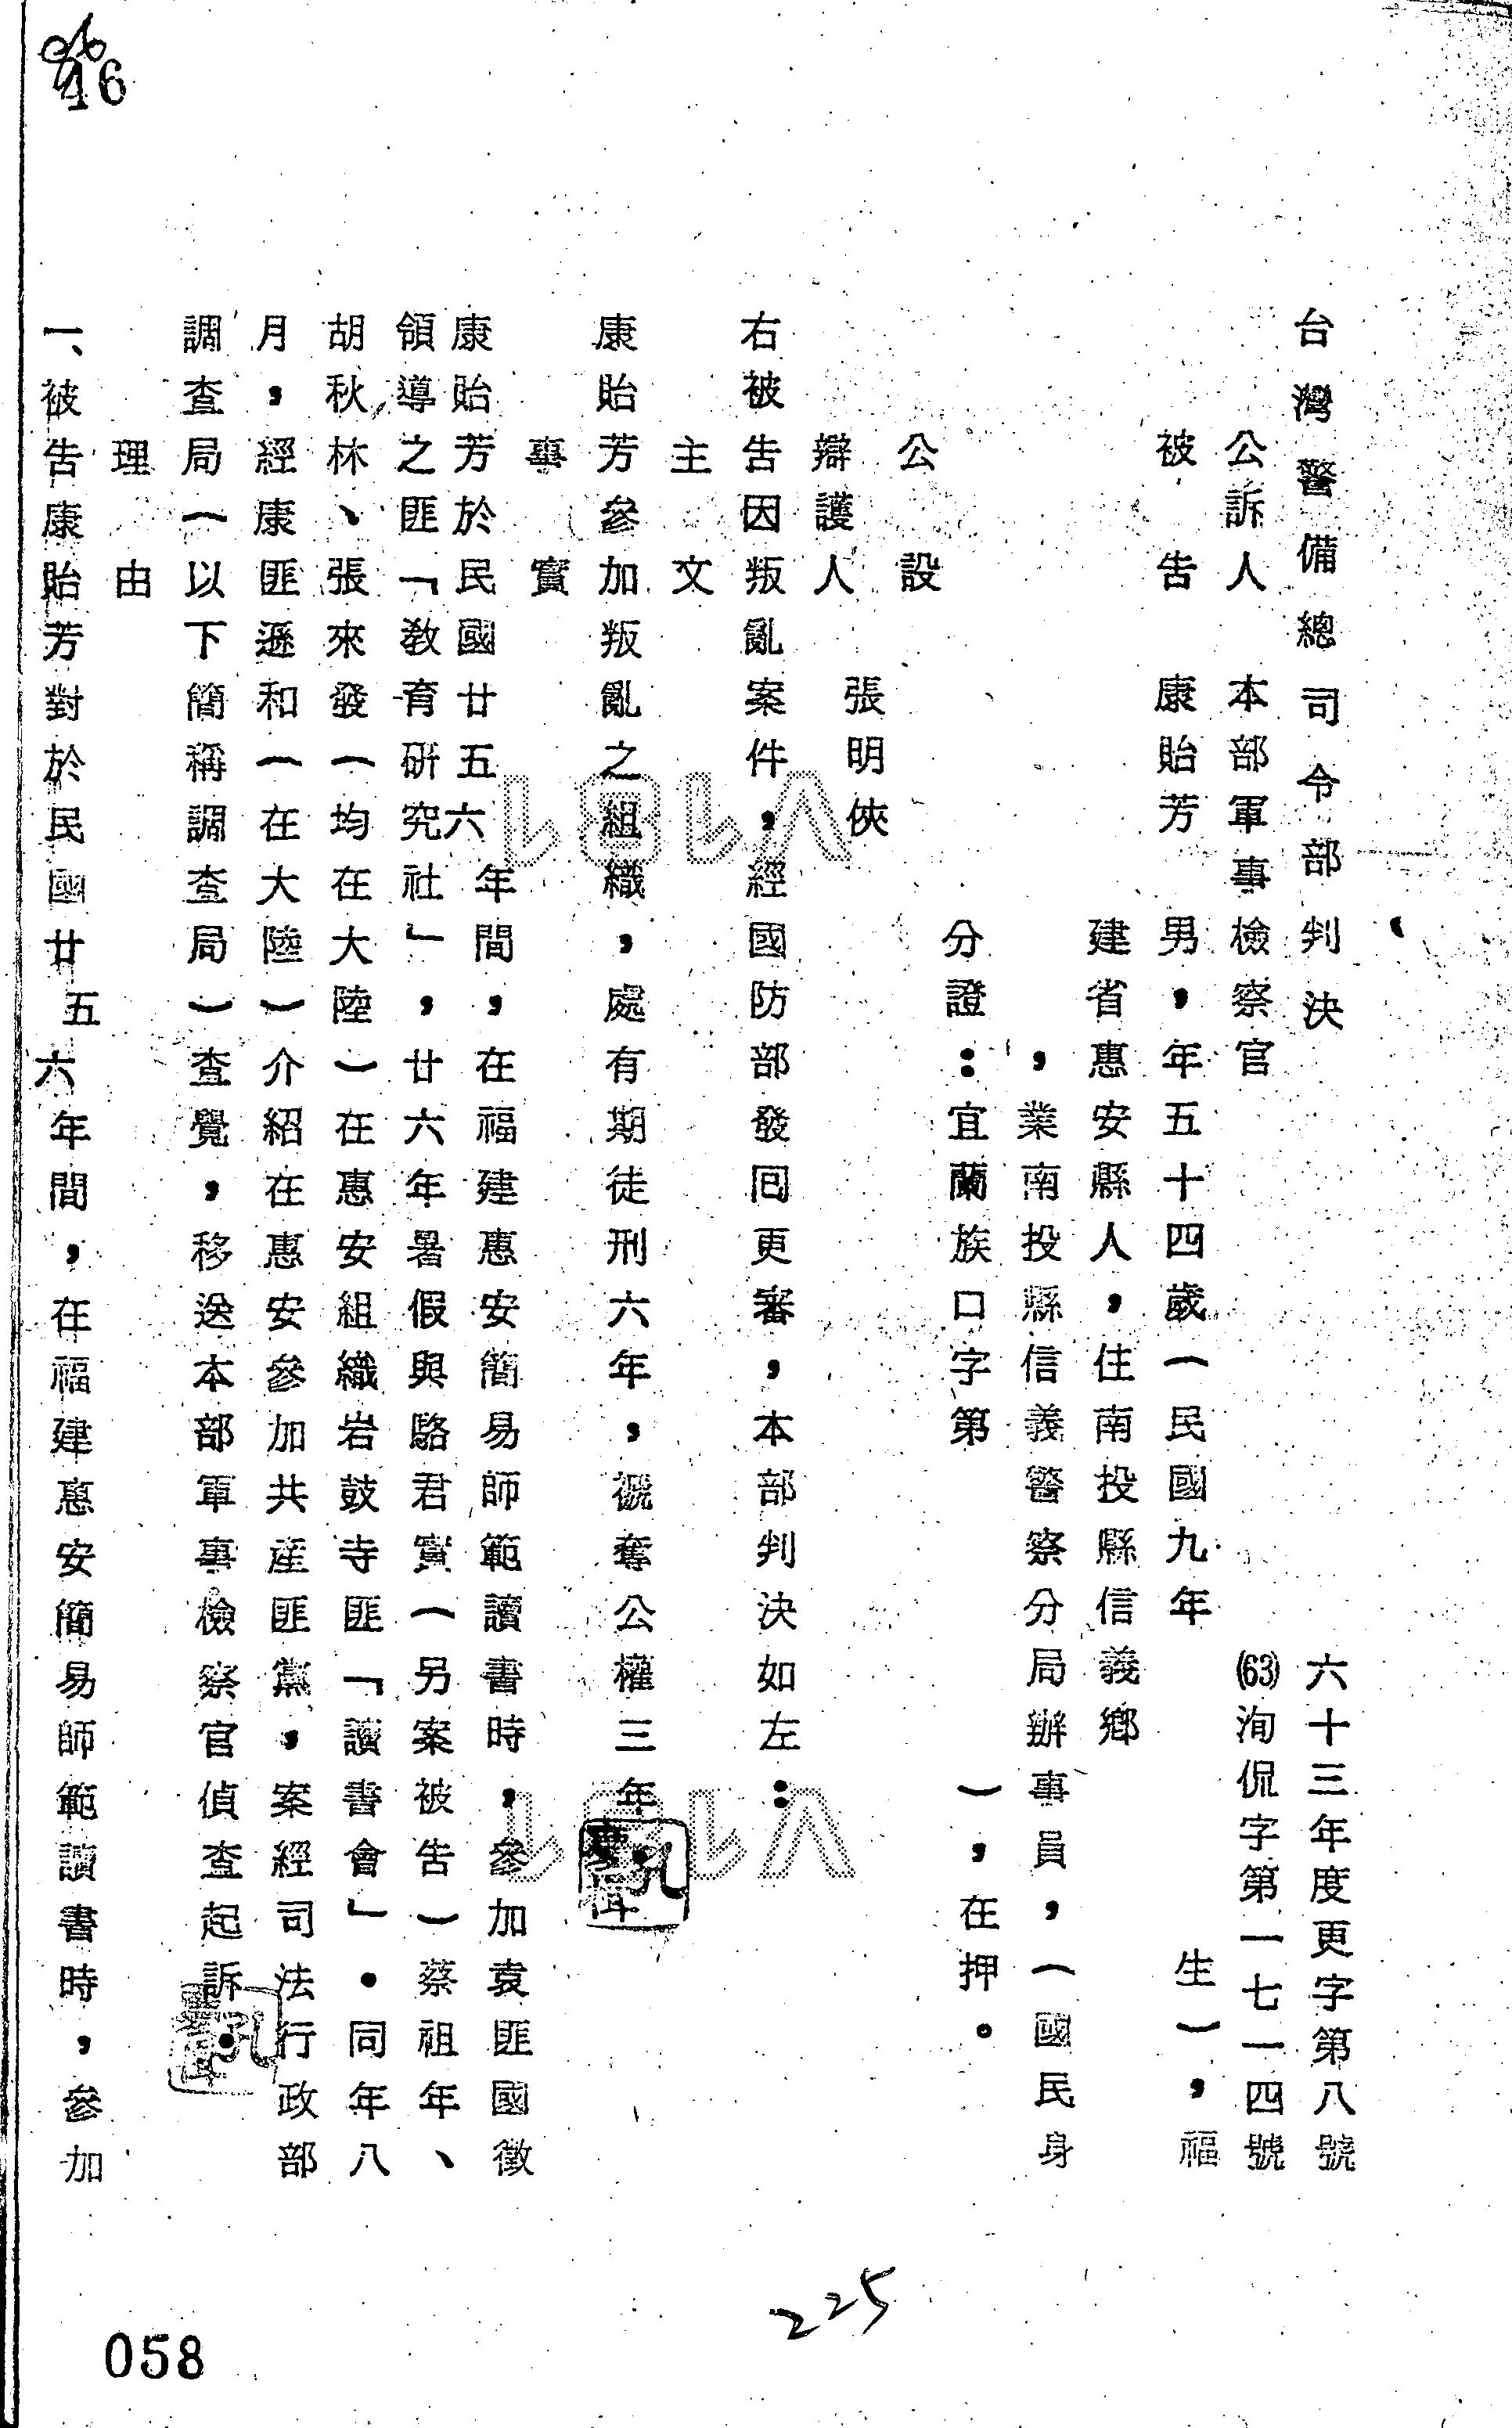 台灣警備總司令部判決
六十三年度更字第八號
(63)洵侃字第一七一四號
公訴人 本部軍事檢察官
被告 康貽芳 男，年五十四歲（民國九年
生），福
建省惠安縣人，住南投縣信義鄉
，業南投縣信義警察分局辦事員，（國民身
分證：宜蘭族口字第
），在押。
公設
辯護人 張明俠
右被告因叛亂案件，經國防部發囘更審，本部判決如左：
主文
康貽芳參加叛亂之組織，處有期徒刑六年，褫奪公權三年
事實
康貽芳於民國廿五六年間，在福建惠安簡易師範讀書時，參加袁匪國徵
領導之匪「教育研究社」，廿六年暑假與駱君實（另案被告）蔡祖年、
胡秋林、張來發（均在大陸）在惠安組織岩鼓寺匪「讀書會」．同年八
月，經康匪遜和（在大陸）介紹在惠安參加共產匪黨，案經司法行政部
調查局（以下簡稱調查局）查覺，移送本部軍事檢察官偵查起訴．
理由
一、被告康貽芳對於民國廿五六年間，在福建惠安簡易師範讀書時，參加
16
225
058